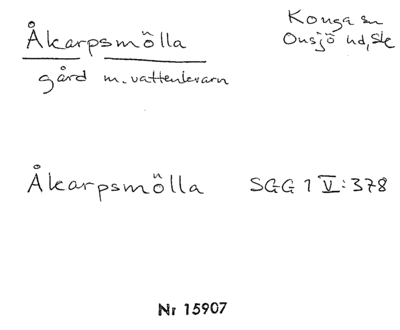 Åkarpsmölla
Konga sn
Onsjö hd, Sk
gård m. vattenkvarn
Åkarpsmölla SGG 1 V: 378
Nr 15907